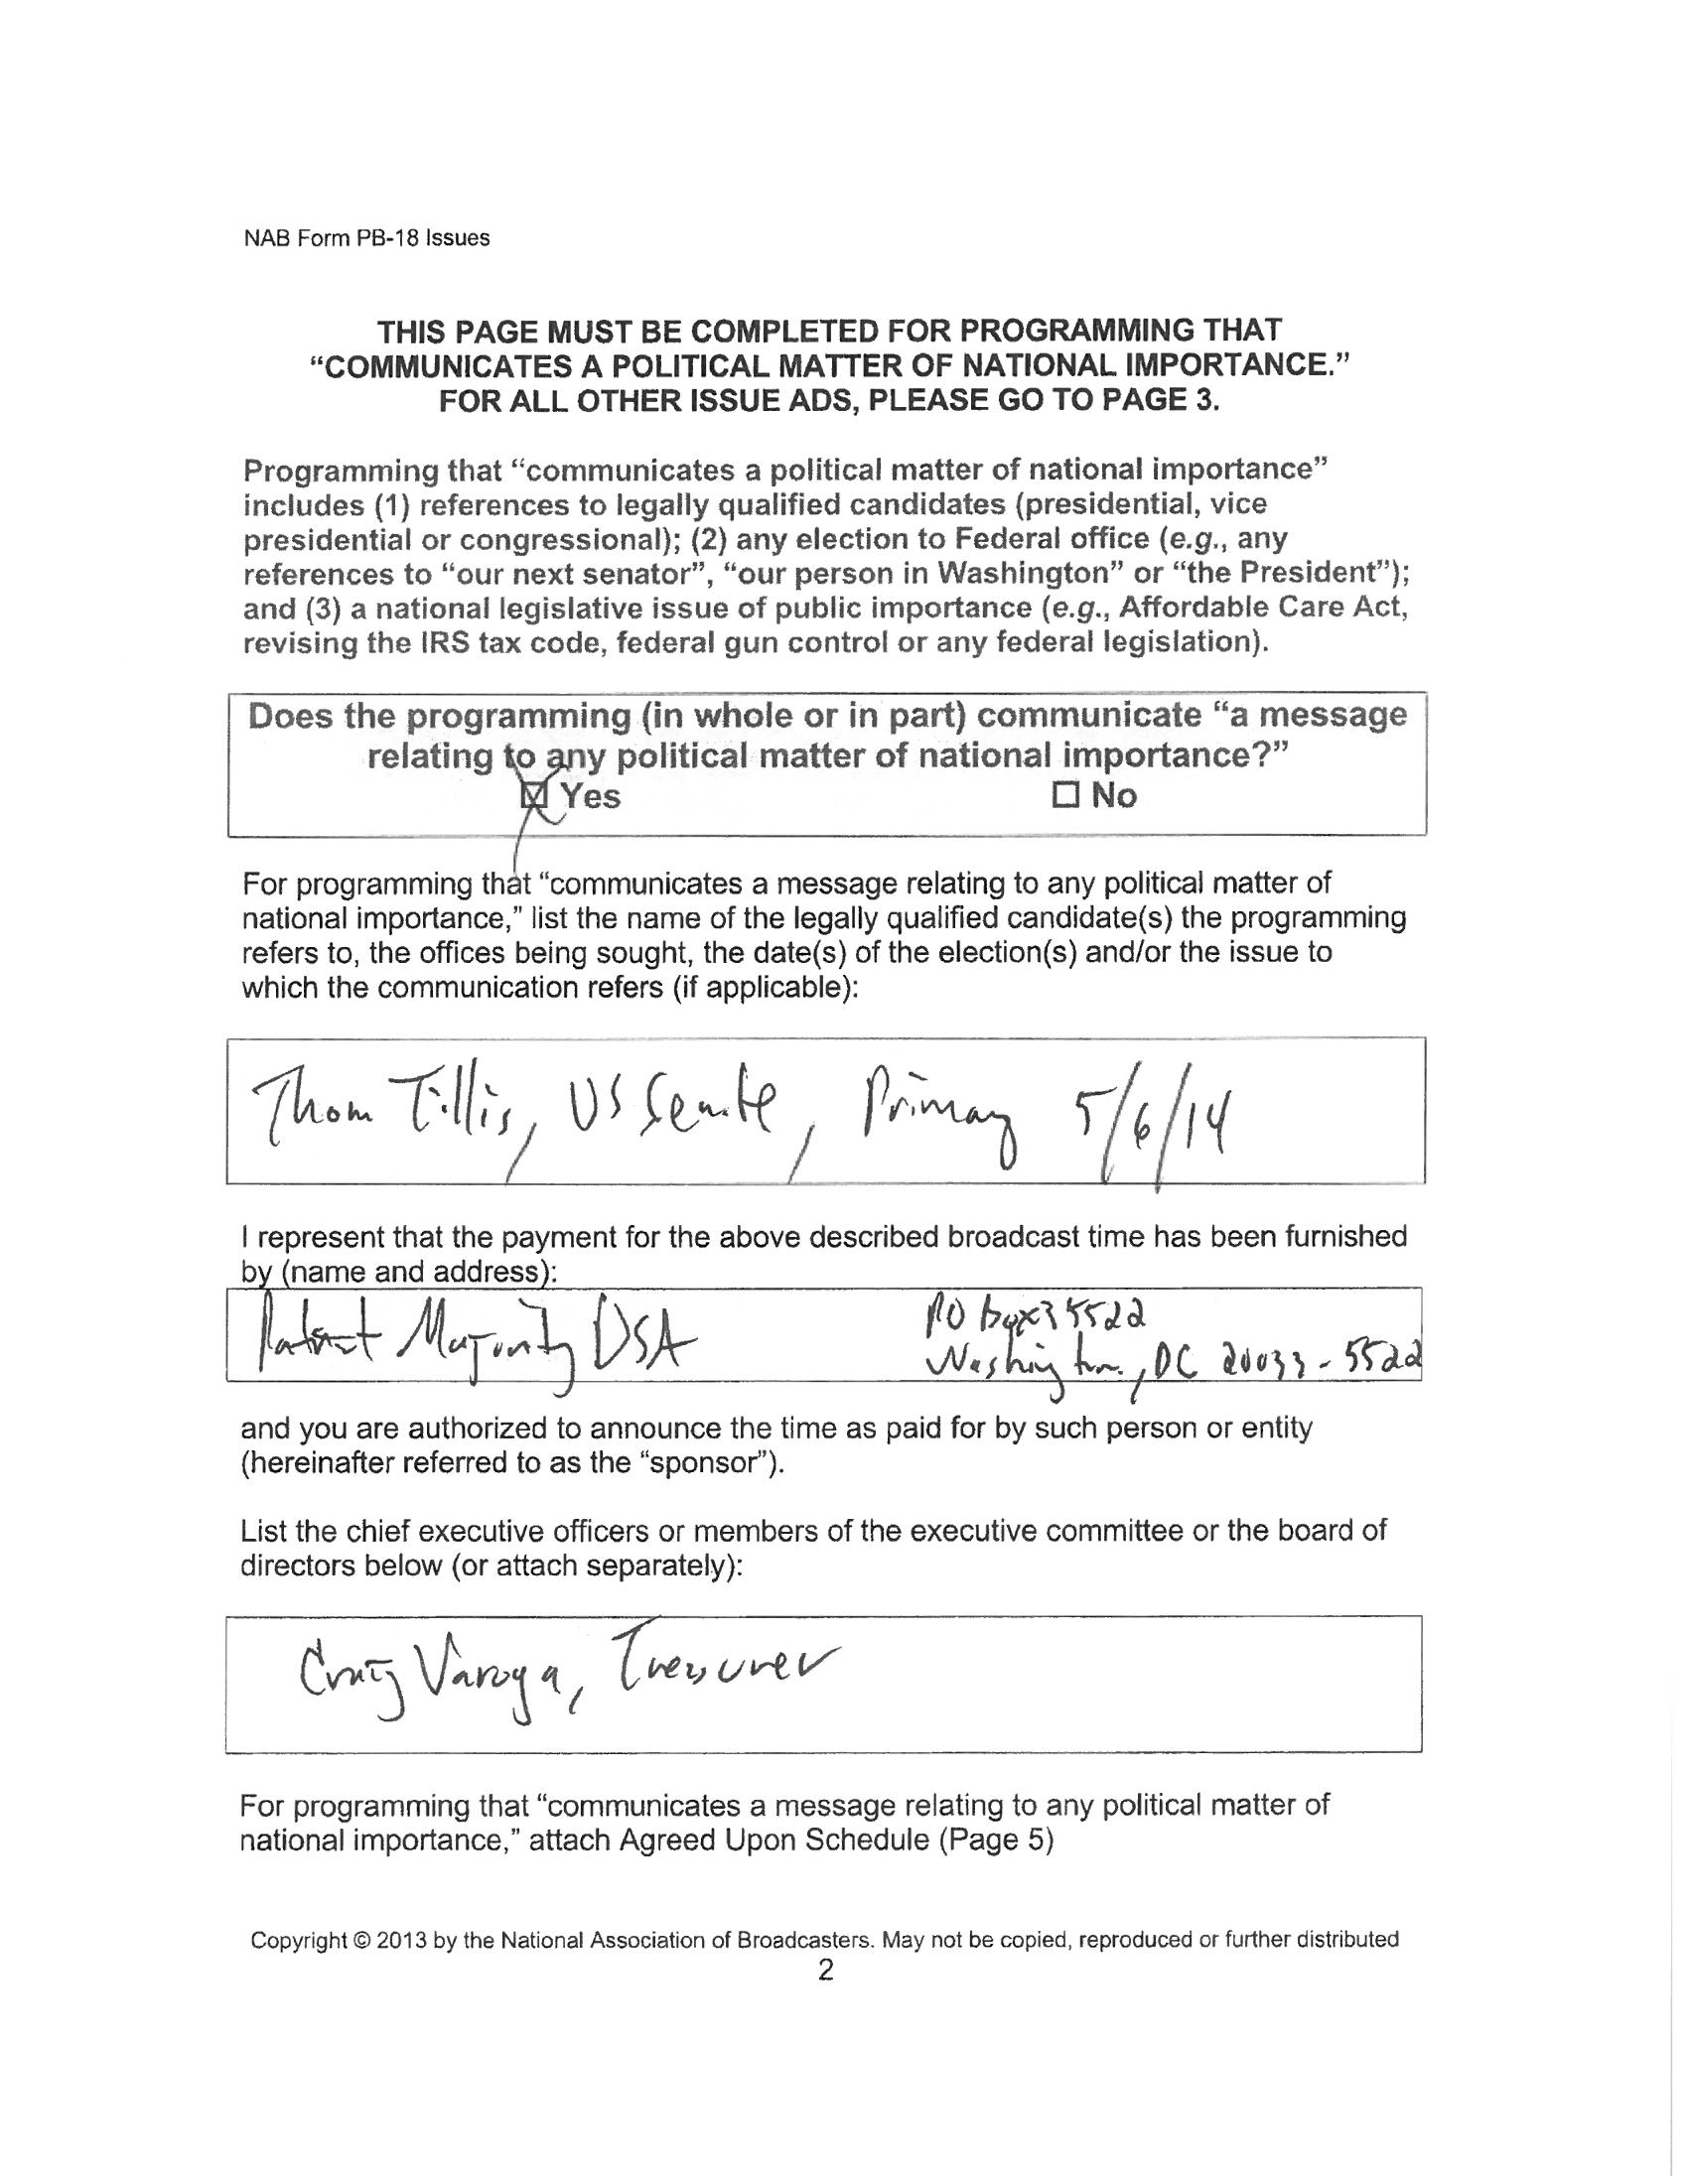 NAB Form PB-18 Issues
THIS PAGE MUST BE COMPLETED FOR PROGRAMMING THAT
“COMMUNICATES A POLITICAL MATTER OF NATIONAL IMPORTANCE.”
FOR ALL OTHER ISSUE ADS, PLEASE GO TO PAGE 3.
Programming that “communicates a political matter of national importance”
includes (1) references to legally qualified candidates (presidential, vice
presidential or congressional); (2) any election to Federal office (e.g., any
references to “our next senator”, “our person in Washington” or “the President”);
and (3) a national legislative issue of public importance (e.g., Affordable Care Act,
revising the IRS tax code, federal gun control or any federal legislation).
Does the programming (in whole or in part) communicate “a message
relating to any political matter of national importance?”
☒ Yes ☐ No
For programming that “communicates a message relating to any political matter of
national importance,” list the name of the legally qualified candidate(s) the programming
refers to, the offices being sought, the date(s) of the election(s) and/or the issue to
which the communication refers (if applicable):
Thom Tillis, US Senate, Primary 5/6/14
I represent that the payment for the above described broadcast time has been furnished
by (name and address):
Patriot Majority USA PO Box 35522
Washington, DC 20033-5522
and you are authorized to announce the time as paid for by such person or entity
(hereinafter referred to as the “sponsor”).
List the chief executive officers or members of the executive committee or the board of
directors below (or attach separately):
Craig Varoga, Treasurer
For programming that “communicates a message relating to any political matter of
national importance,” attach Agreed Upon Schedule (Page 5)
Copyright © 2013 by the National Association of Broadcasters. May not be copied, reproduced or further distributed
2